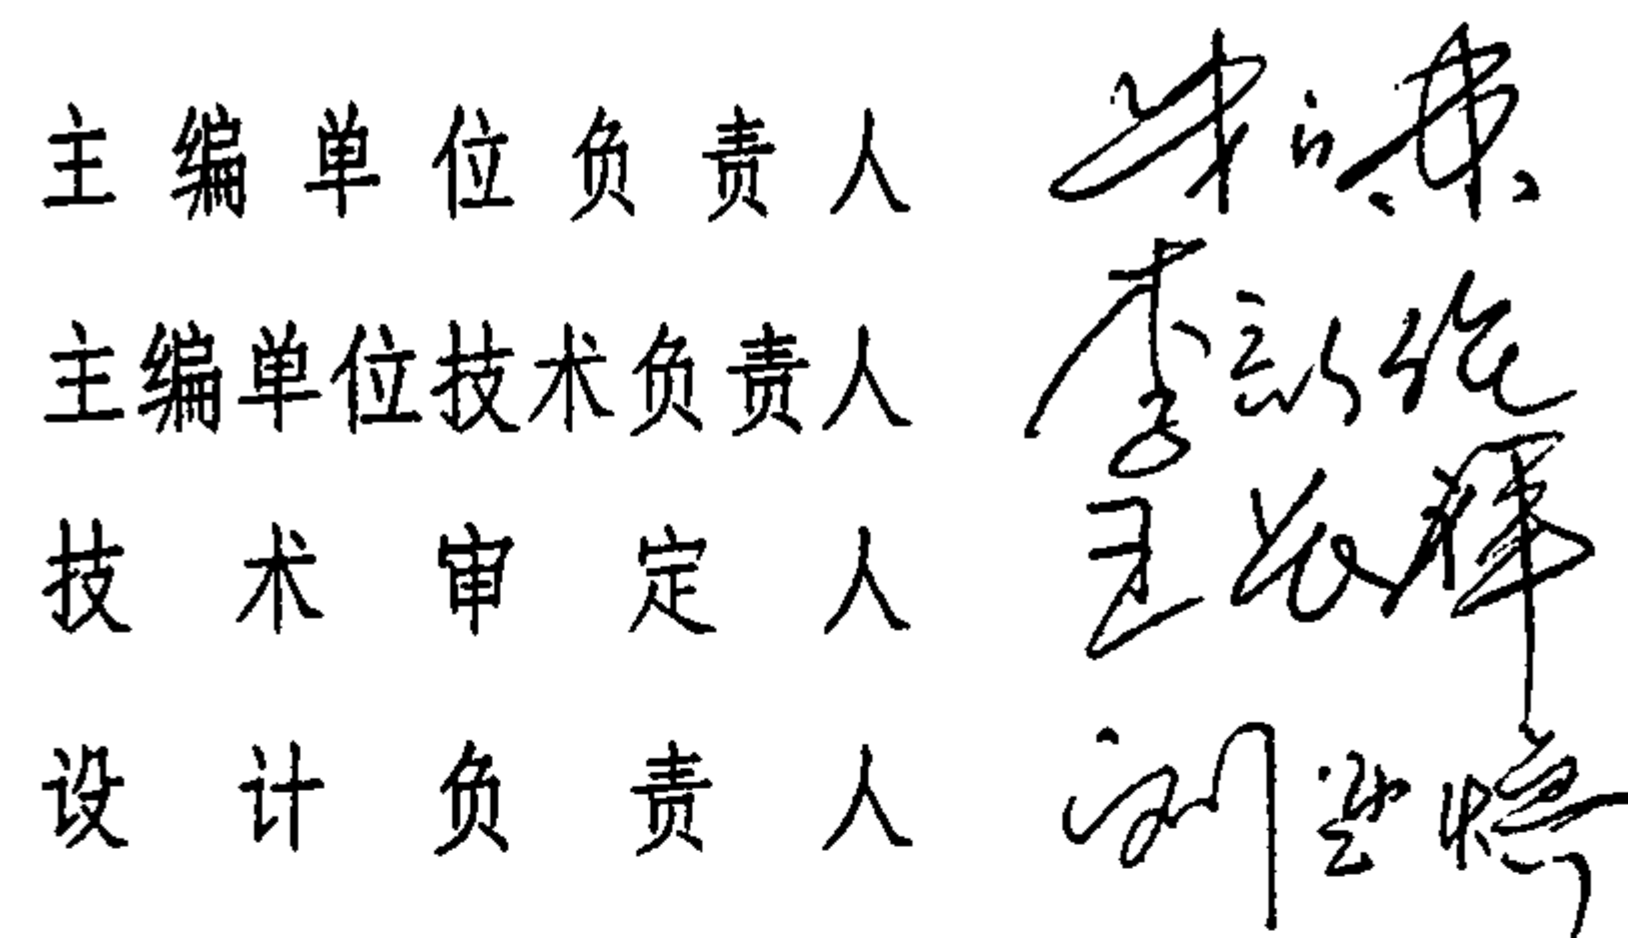 主编单位负责人
主编单位技术负责人 李
技术审定人 王
设计负责人 刘